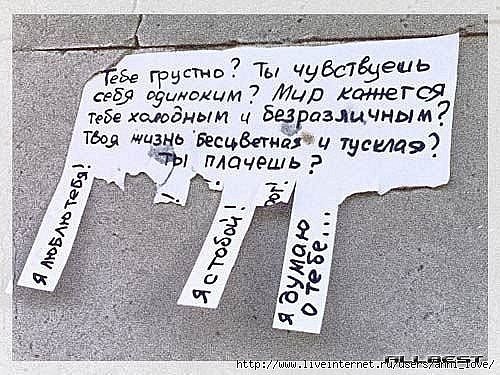 Тебе грустно? Ты чувствуешь
себя одиноким? Мир кажется
тебе холодным и безразличным?
Твоя жизнь бесцветная и тусклая?
Ты плачешь?
Я люблю тебя!
Я с тобой!
Я думаю
о тебе...
ALLBEST
http://www.liveinternet.ru/users/anni_love/